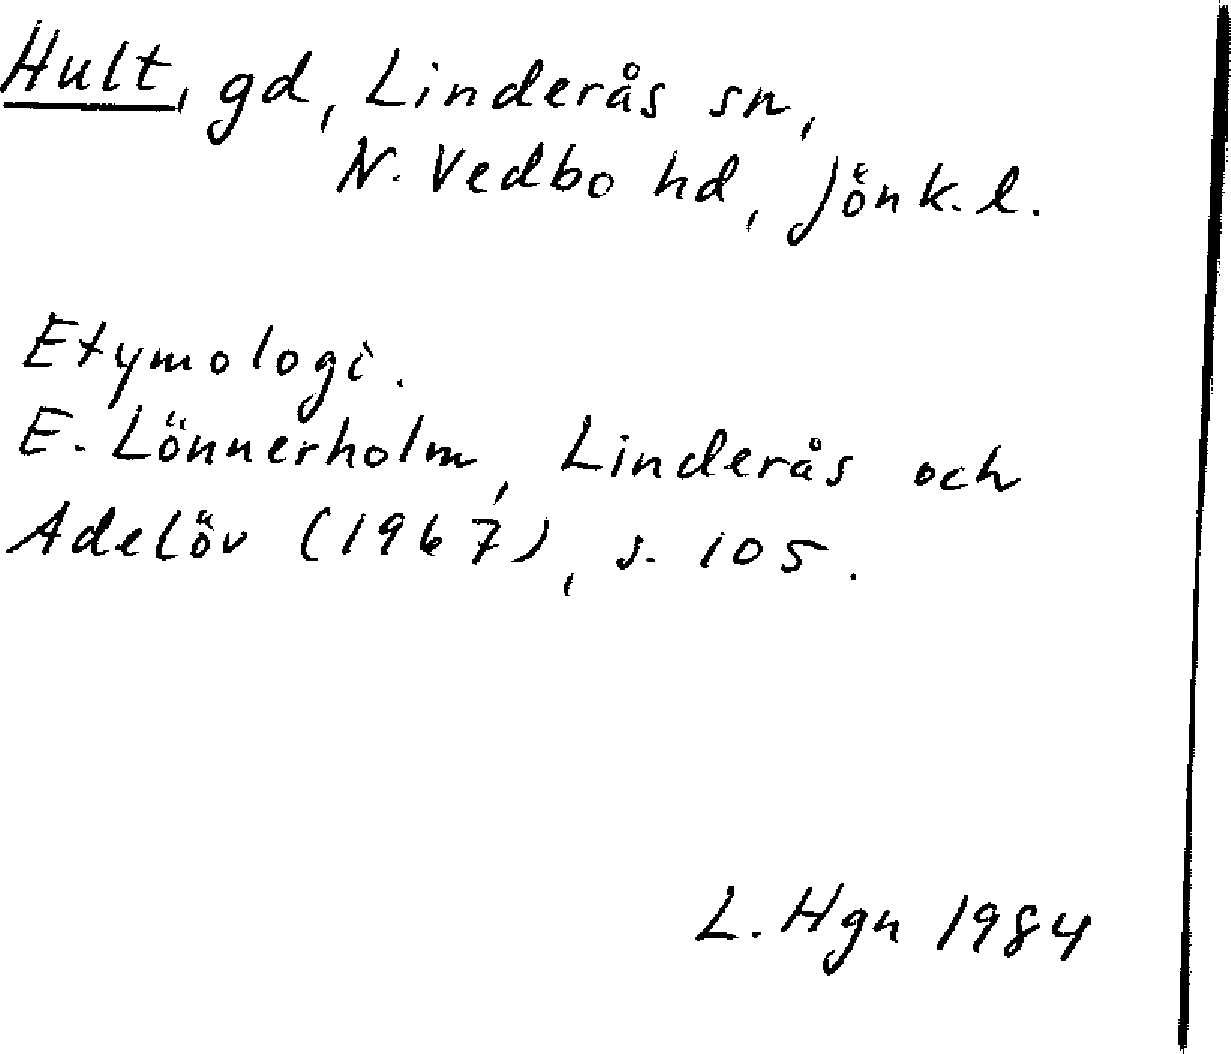 Hult, gd, Linderås sn,
N. Vedbo hd, Jönk. l.
Etymologi.
E. Lönnerholm, Linderås och
Adelöv (1967), s. 105.
L. Hgn 1984